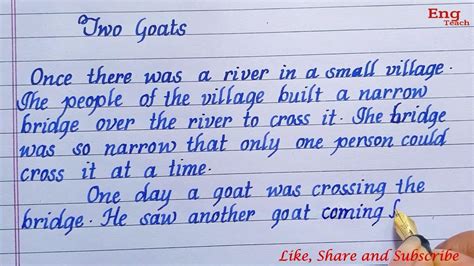 Eng
Teach
Two Goats
Once there was a river in a small village.
The people of the village built a narrow
bridge over the river to cross it. The bridge
was so narrow that only one person could
cross it at a time.
One day a goat was crossing the
bridge. He saw another goat coming f
Like, Share and Subscribe